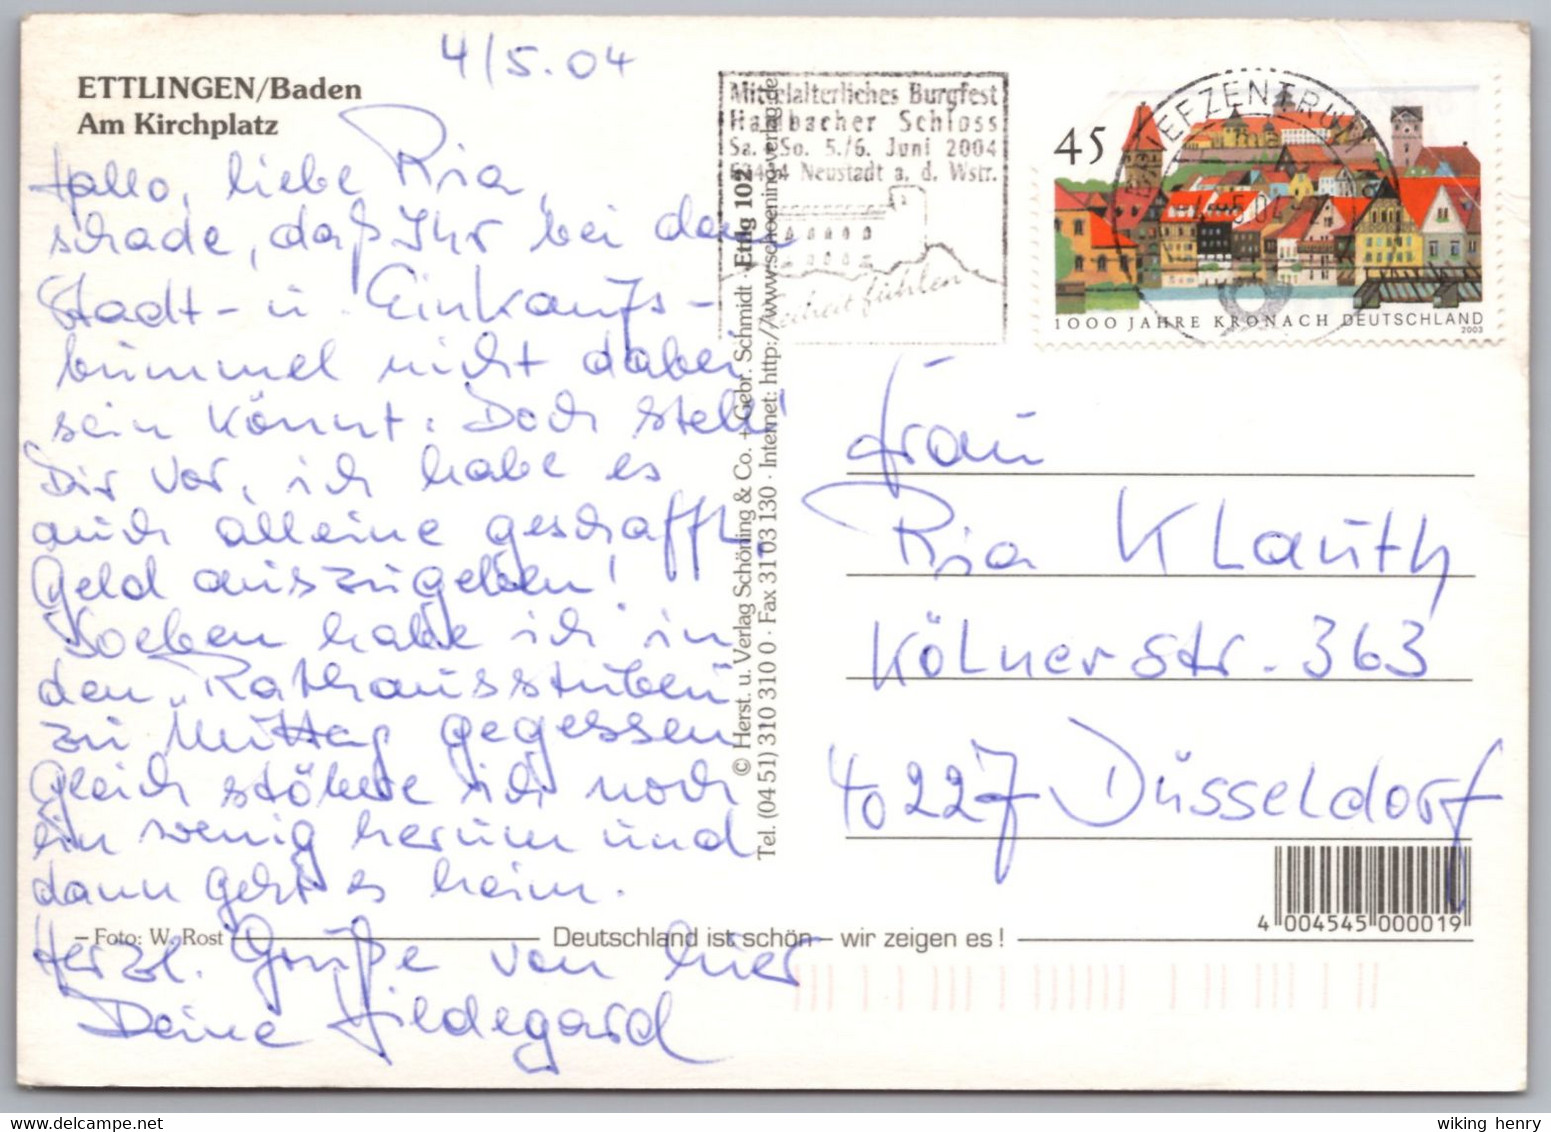 4/5.04
ETTLINGEN/Baden
Am Kirchplatz
Hallo, liebe Ria,
schade, daß Ihr bei dem
Stadt- u. Einkaufs-
bummel nicht dabei
sein könnt. Doch stell'
Dir vor, ich habe es
auch alleine geschafft,
Geld auszugeben!
Soeben habe ich in
den "Rathausstuben"
zu Mittag gegessen
Gleich stöbere ich noch
ein wenig herum und
dann geht es heim.
Herzl. Grüße von hier
Deine Hildegard
Foto: W. Rost
Deutschland ist schön – wir zeigen es!
© Herst. u. Verlag Schöning & Co. + Gebr. Schmidt Ettlg 102
Tel. (04 51) 310 310 0 · Fax 31 03 130 · Internet: http://www.schoening-verlag.de
Mittelalterliches Burgfest
Hambacher Schloss
Sa. So. 5./6. Juni 2004
Neustadt a. d. Wstr.
Freiheit fühlen
BRIEFZENTRUM
45
1000 JAHRE KRONACH DEUTSCHLAND
2003
Frau
Ria Klauth
Kölnerstr. 363
40227 Düsseldorf
4 004545 000019
wiking henry